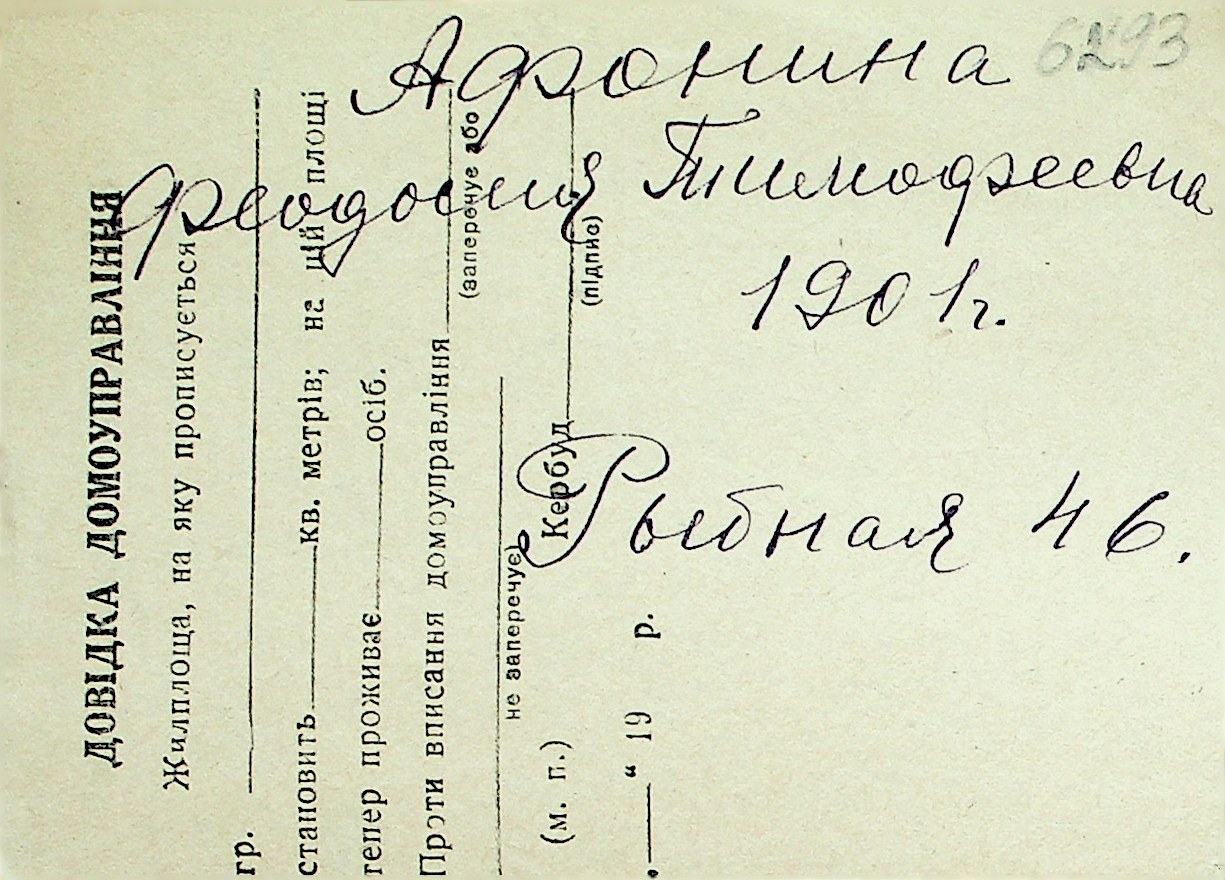 6293
Афонина
Феодосия Тимофеевна
1901г.
Рыбная 46.
ДОВІДКА ДОМОУПРАВЛІННЯ
Жилплоща, на яку прописується
гр.
становить кв. метрів; на цій площі
тепер проживає осіб.
Проти вписання домоуправління
(заперечує або
не заперечує)
(м. п.) Кербуд
(підпис)
“ 19 р.